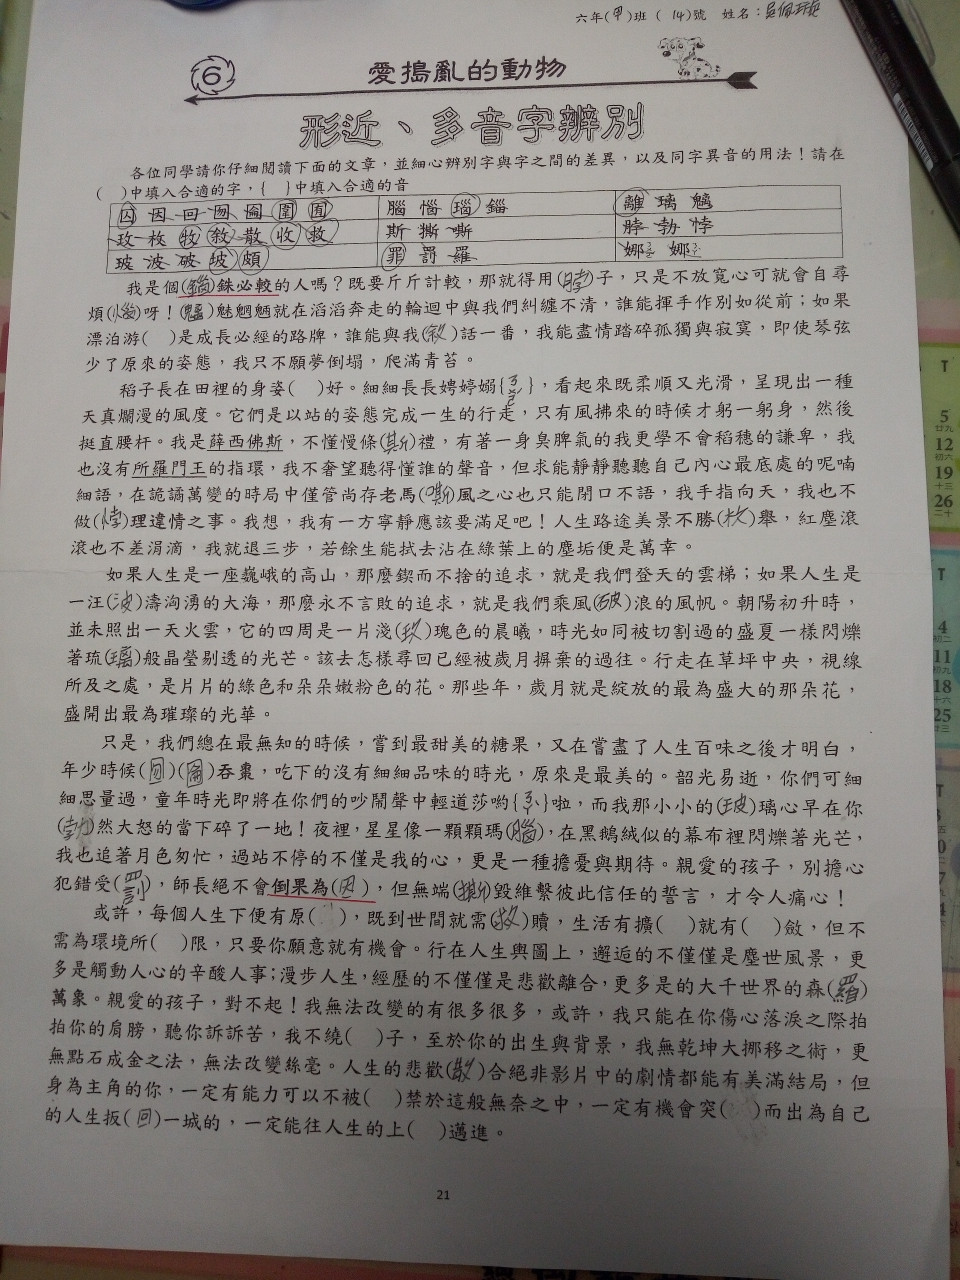 六年(甲)班 ( 14)號 姓名：吳佩
6
愛搗亂的動物
形近、多音字辨別
各位同學請你仔細閱讀下面的文章，並細心辨別字與字之間的差異，以及同字異音的用法！請在
( )中填入合適的字，{ }中填入合適的音
囚 因 回 囫 圇 圍 囿
腦 惱 瑙 錙
離 璃 魑
玫 枚 牧 敘 散 收 救
斯 撕 嘶
脖 勃 悖
玻 波 破 坡 頗
罪 罰 羅
娜 娜
我是個(錙)銖必較的人嗎？既要斤斤計較，那就得用(脖)子，只是不放寬心可就會自尋
煩(惱)呀！(魑)魅魍魎就在滔滔奔走的輪迴中與我們糾纏不清，誰能揮手作別如從前；如果
漂泊游( )是成長必經的路牌，誰能與我(敘)話一番，我能盡情踏碎孤獨與寂寞，即使琴弦
少了原來的姿態，我只不願夢倒塌，爬滿青苔。
稻子長在田裡的身姿( )好。細細長長娉婷嫋{ㄋㄨㄛˊ}，看起來既柔順又光滑，呈現出一種
天真爛漫的風度。它們是以站的姿態完成一生的行走，只有風拂來的時候才躬一躬身，然後
挺直腰杆。我是薛西佛斯，不懂慢條(斯)禮，有著一身臭脾氣的我更學不會稻穗的謙卑，我
也沒有所羅門王的指環，我不奢望聽得懂誰的聲音，但求能靜靜聽聽自己內心最底處的呢喃
細語，在詭譎萬變的時局中僅管尚存老馬(嘶)風之心也只能閉口不語，我手指向天，我也不
做(悖)理違情之事。我想，我有一方寧靜應該要滿足吧！人生路途美景不勝(枚)舉，紅塵滾
滾也不差涓滴，我就退三步，若餘生能拭去沾在綠葉上的塵垢便是萬幸。
如果人生是一座巍峨的高山，那麼鍥而不捨的追求，就是我們登天的雲梯；如果人生是
一汪(波)濤洶湧的大海，那麼永不言敗的追求，就是我們乘風(破)浪的風帆。朝陽初升時，
並未照出一天火雲，它的四周是一片淺(玫)瑰色的晨曦，時光如同被切割過的盛夏一樣閃爍
著琉(璃)般晶瑩剔透的光芒。該去怎樣尋回已經被歲月摒棄的過往。行走在草坪中央，視線
所及之處，是片片的綠色和朵朵嫩粉色的花。那些年，歲月就是綻放的最為盛大的那朵花，
盛開出最為璀璨的光華。
只是，我們總在最無知的時候，嘗到最甜美的糖果，又在嘗盡了人生百味之後才明白，
年少時候(囫)(圇)吞棗，吃下的沒有細細品味的時光，原來是最美的。韶光易逝，你們可細
細思量過，童年時光即將在你們的吵鬧聲中輕道莎喲{ㄋㄚˋ}啦，而我那小小的(玻)璃心早在你
(勃)然大怒的當下碎了一地！夜裡，星星像一顆顆瑪(腦)，在黑鵝絨似的幕布裡閃爍著光芒，
我也追著月色匆忙，過站不停的不僅是我的心，更是一種擔憂與期待。親愛的孩子，別擔心
犯錯受(罰)，師長絕不會倒果為(因)，但無端(撕)毀維繫彼此信任的誓言，才令人痛心！
或許，每個人生下便有原( )，既到世間就需(救)贖，生活有擴( )就有( )斂，但不
需為環境所( )限，只要你願意就有機會。行在人生輿圖上，邂逅的不僅僅是塵世風景，更
多是觸動人心的辛酸人事；漫步人生，經歷的不僅僅是悲歡離合，更多是的大千世界的森(羅)
萬象。親愛的孩子，對不起！我無法改變的有很多很多，或許，我只能在你傷心落淚之際拍
拍你的肩膀，聽你訴訴苦，我不繞( )子，至於你的出生與背景，我無乾坤大挪移之術，更
無點石成金之法，無法改變絲毫。人生的悲歡(散)合絕非影片中的劇情都能有美滿結局，但
身為主角的你，一定有能力可以不被( )禁於這般無奈之中，一定有機會突( )而出為自己
的人生扳(回)一城的，一定能往人生的上( )邁進。
21
T
5
廿九
12
初六
19
十三
26
二十
T
4
11
18
十六
25
廿三